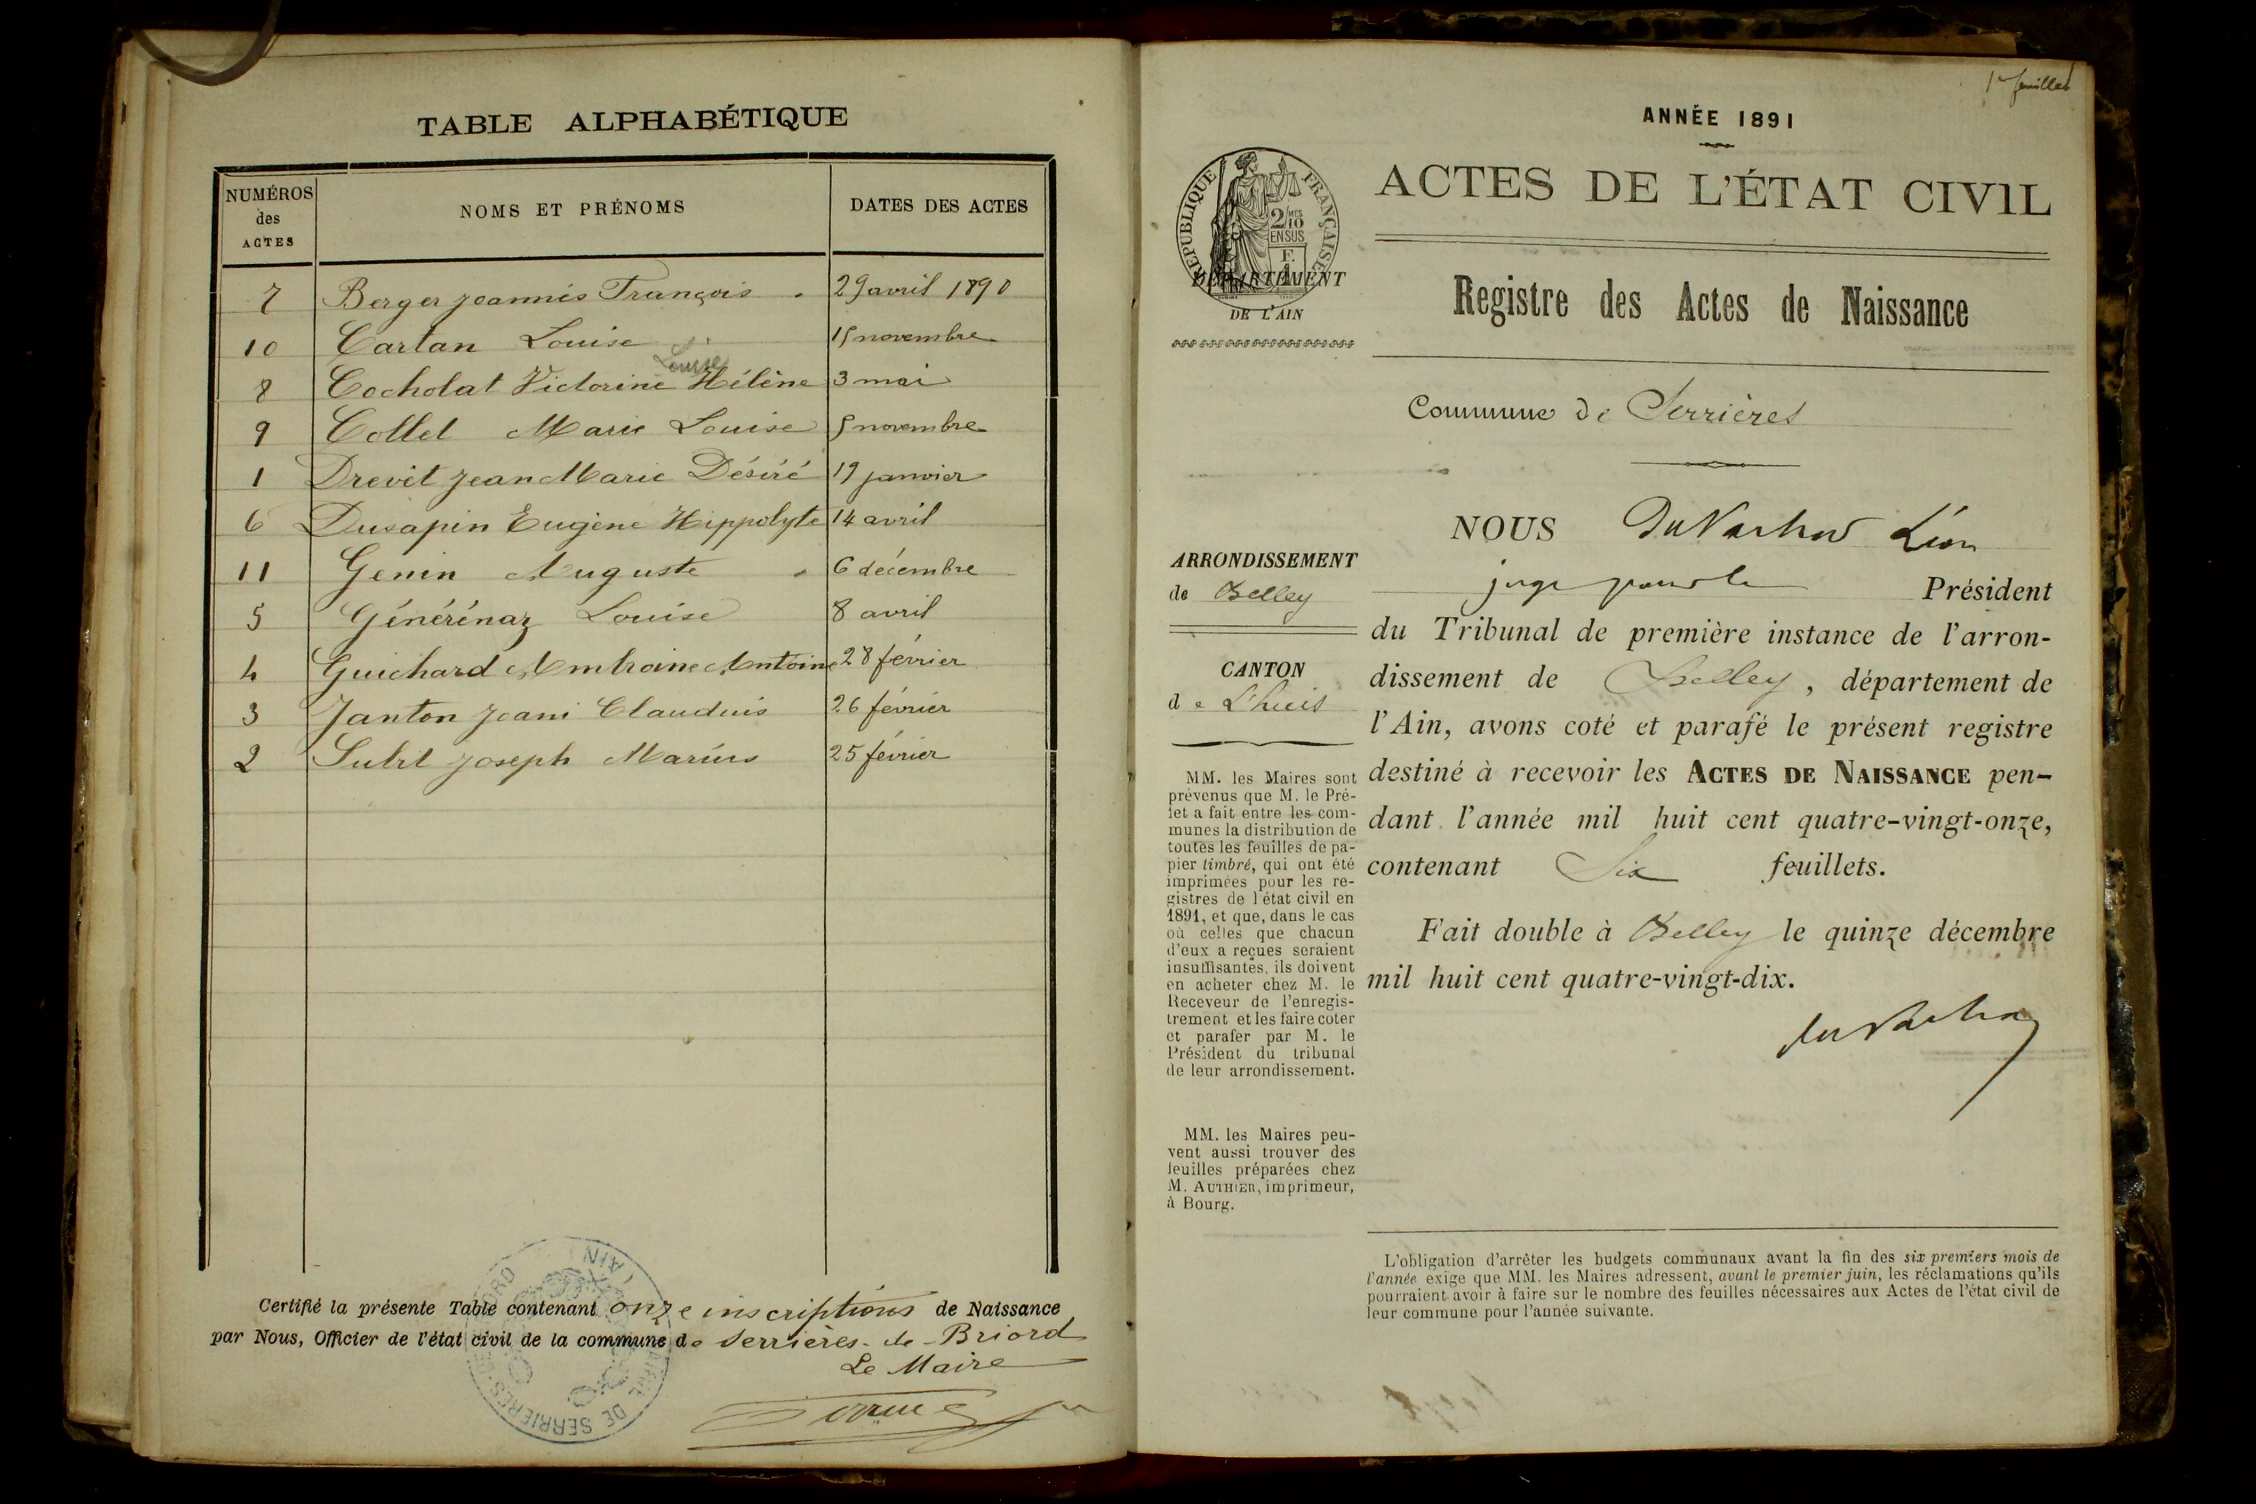 TABLE ALPHABÉTIQUE
NUMÉROS
des
ACTES
NOMS ET PRÉNOMS
DATES DES ACTES
7 Berger Joannès François 29 avril 1890
10 Cartan Louise 15 novembre
Louise
8 Cocholat Victorine Hélène 3 mai
9 Collet Marie Louise 5 novembre
1 Drevet Jean Marie Désiré 19 janvier
6 Dusapin Eugène Hippolyte 14 avril
11 Genin Auguste 6 décembre
5 Générénaz Louise 8 avril
4 Guichard Antoine 28 février
3 Janton Joani Claudius 26 février
2 Joseph Marius 25 février
Certifié la présente Table contenant onze inscriptions de Naissance
par Nous, Officier de l'état civil de la commune de Serrières-de-Briord
Le Maire
1er feuillet
ANNÉE 1891
ACTES DE L'ÉTAT CIVIL
RÉPUBLIQUE FRANÇAISE
2/10
EN SUS
DÉPARTEMENT
DE L'AIN
Registre des Actes de Naissance
Commune de Serrières
ARRONDISSEMENT
de Belley
CANTON
de L'huis
MM. les Maires sont
prévenus que M. le Pré-
fet a fait entre les com-
munes la distribution de
toutes les feuilles de pa-
pier timbré, qui ont été
imprimées pour les re-
gistres de l'état civil en
1891, et que, dans le cas
où celles que chacun
d'eux a reçues seraient
insuffisantes, ils doivent
en acheter chez M. le
Receveur de l'enregis-
trement et les faire coter
et parafer par M. le
Président du tribunal
de leur arrondissement.
MM. les Maires peu-
vent aussi trouver des
feuilles préparées chez
M. AUTHIER, imprimeur,
à Bourg.
NOUS Léon
juge pour le Président
du Tribunal de première instance de l'arron-
dissement de Belley, département de
l'Ain, avons coté et parafé le présent registre
destiné à recevoir les ACTES DE NAISSANCE pen-
dant l'année mil huit cent quatre-vingt-onze,
contenant Six feuillets.
Fait double à Belley le quinze décembre
mil huit cent quatre-vingt-dix.
L'obligation d'arrêter les budgets communaux avant la fin des six premiers mois de
l'année exige que MM. les Maires adressent, avant le premier juin, les réclamations qu'ils
pourraient avoir à faire sur le nombre des feuilles nécessaires aux Actes de l'état civil de
leur commune pour l'année suivante.